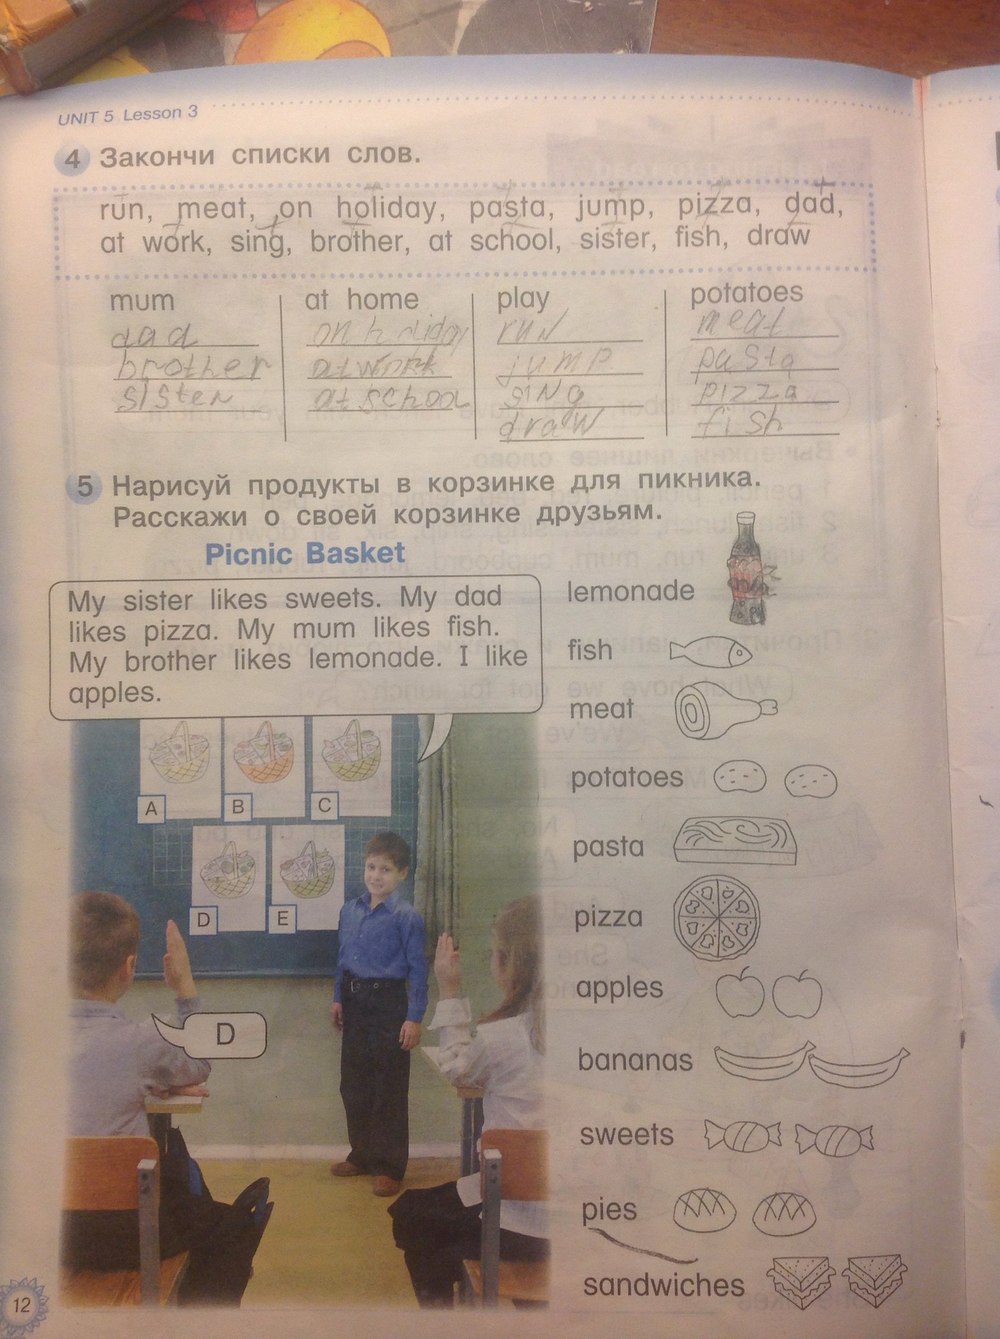 UNIT 5 Lesson 3
4 Закончи списки слов.
run, meat, on holiday, pasta, jump, pizza, dad,
at work, sing, brother, at school, sister, fish, draw
mum
dad
brother
sister
at home
on holiday
at work
at school
play
run
jump
sing
draw
potatoes
meat
pasta
pizza
fish
5 Нарисуй продукты в корзинке для пикника.
Расскажи о своей корзинке друзьям.
Picnic Basket
My sister likes sweets. My dad
likes pizza. My mum likes fish.
My brother likes lemonade. I like
apples.
A
B
C
D
E
D
lemonade
fish
meat
potatoes
pasta
pizza
apples
bananas
sweets
pies
sandwiches
12